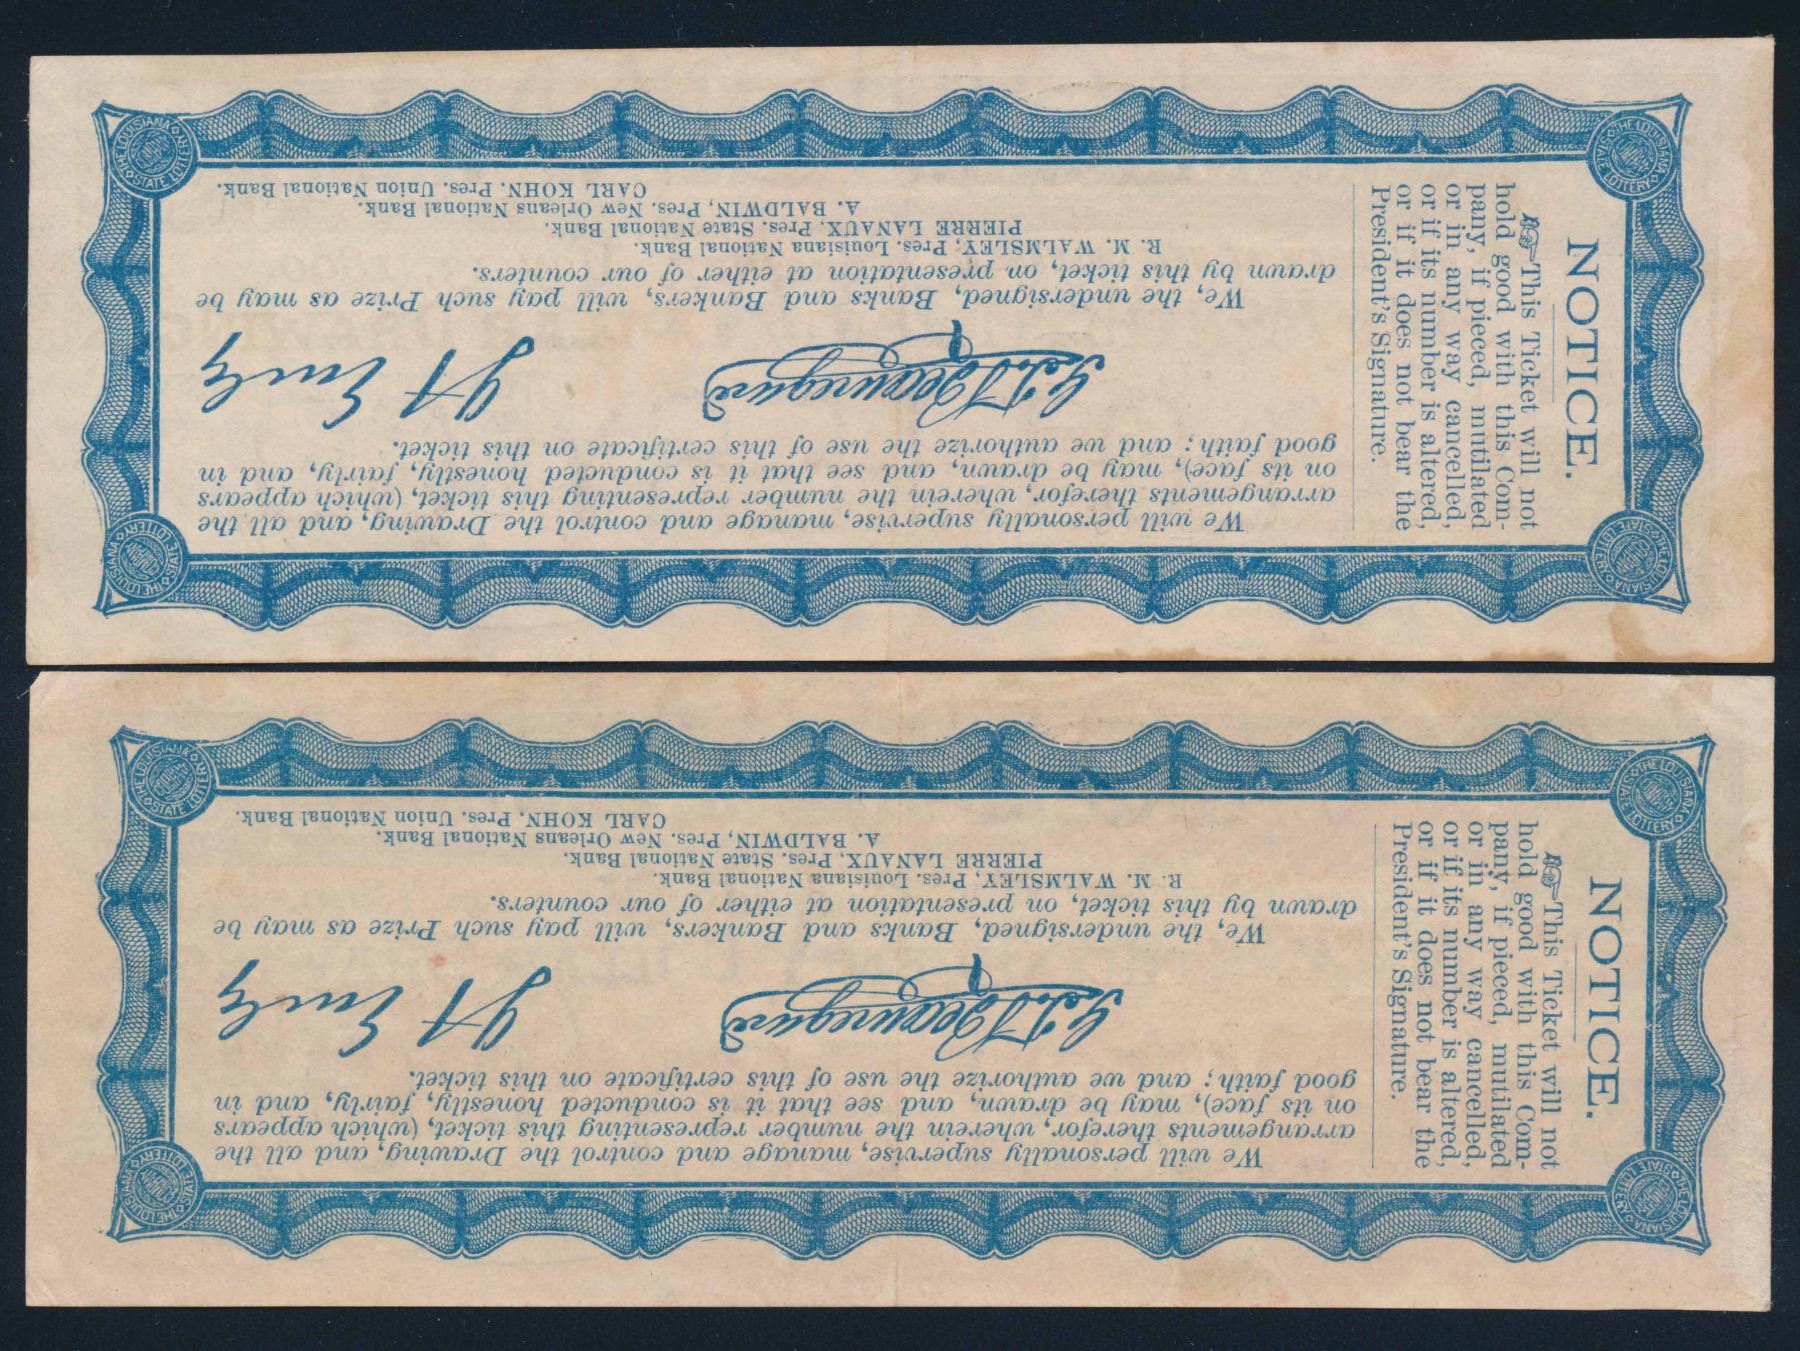 We will personally supervise, manage and control the Drawing, and all the
arrangements therefor, wherein the number representing this ticket, (which appears
on its face), may be drawn, and see that it is conducted honestly, fairly, and in
good faith; and we authorize the use of this certificate on this ticket.
G. T. Beauregard
J A Early
We, the undersigned, Banks and Bankers, will pay such Prize as may be
drawn by this ticket, on presentation at either of our counters.
R. M. WALMSLEY, Pres. Louisiana National Bank.
PIERRE LANAUX, Pres. State National Bank.
A. BALDWIN, Pres. New Orleans National Bank.
CARL KOHN, Pres. Union National Bank.
NOTICE.
☞This Ticket will not
hold good with this Com-
pany, if pieced, mutilated
or in any way cancelled,
or if its number is altered,
or if it does not bear the
President's Signature.
THE LOUISIANA STATE LOTTERY
THE LOUISIANA STATE LOTTERY
THE LOUISIANA STATE LOTTERY
THE LOUISIANA STATE LOTTERY
We will personally supervise, manage and control the Drawing, and all the
arrangements therefor, wherein the number representing this ticket, (which appears
on its face), may be drawn, and see that it is conducted honestly, fairly, and in
good faith; and we authorize the use of this certificate on this ticket.
G. T. Beauregard
J A Early
We, the undersigned, Banks and Bankers, will pay such Prize as may be
drawn by this ticket, on presentation at either of our counters.
R. M. WALMSLEY, Pres. Louisiana National Bank.
PIERRE LANAUX, Pres. State National Bank.
A. BALDWIN, Pres. New Orleans National Bank.
CARL KOHN, Pres. Union National Bank.
NOTICE.
☞This Ticket will not
hold good with this Com-
pany, if pieced, mutilated
or in any way cancelled,
or if its number is altered,
or if it does not bear the
President's Signature.
THE LOUISIANA STATE LOTTERY
THE LOUISIANA STATE LOTTERY
THE LOUISIANA STATE LOTTERY
THE LOUISIANA STATE LOTTERY